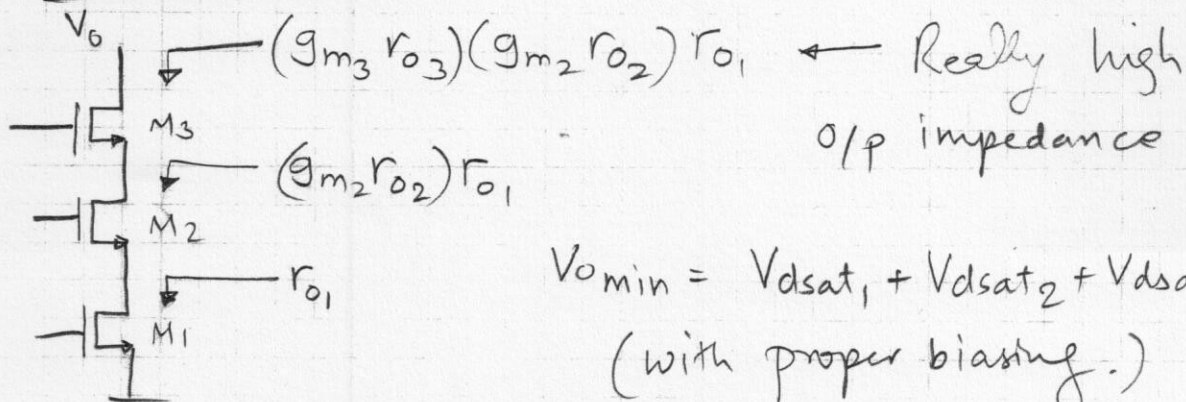 Vo
(gm3 ro3)(gm2 ro2) ro1 ← Really high
o/p impedance
M3
(gm2 ro2) ro1
M2
ro1
Vo min = Vdsat1 + Vdsat2 + Vdsa
M1
(with proper biasing.)